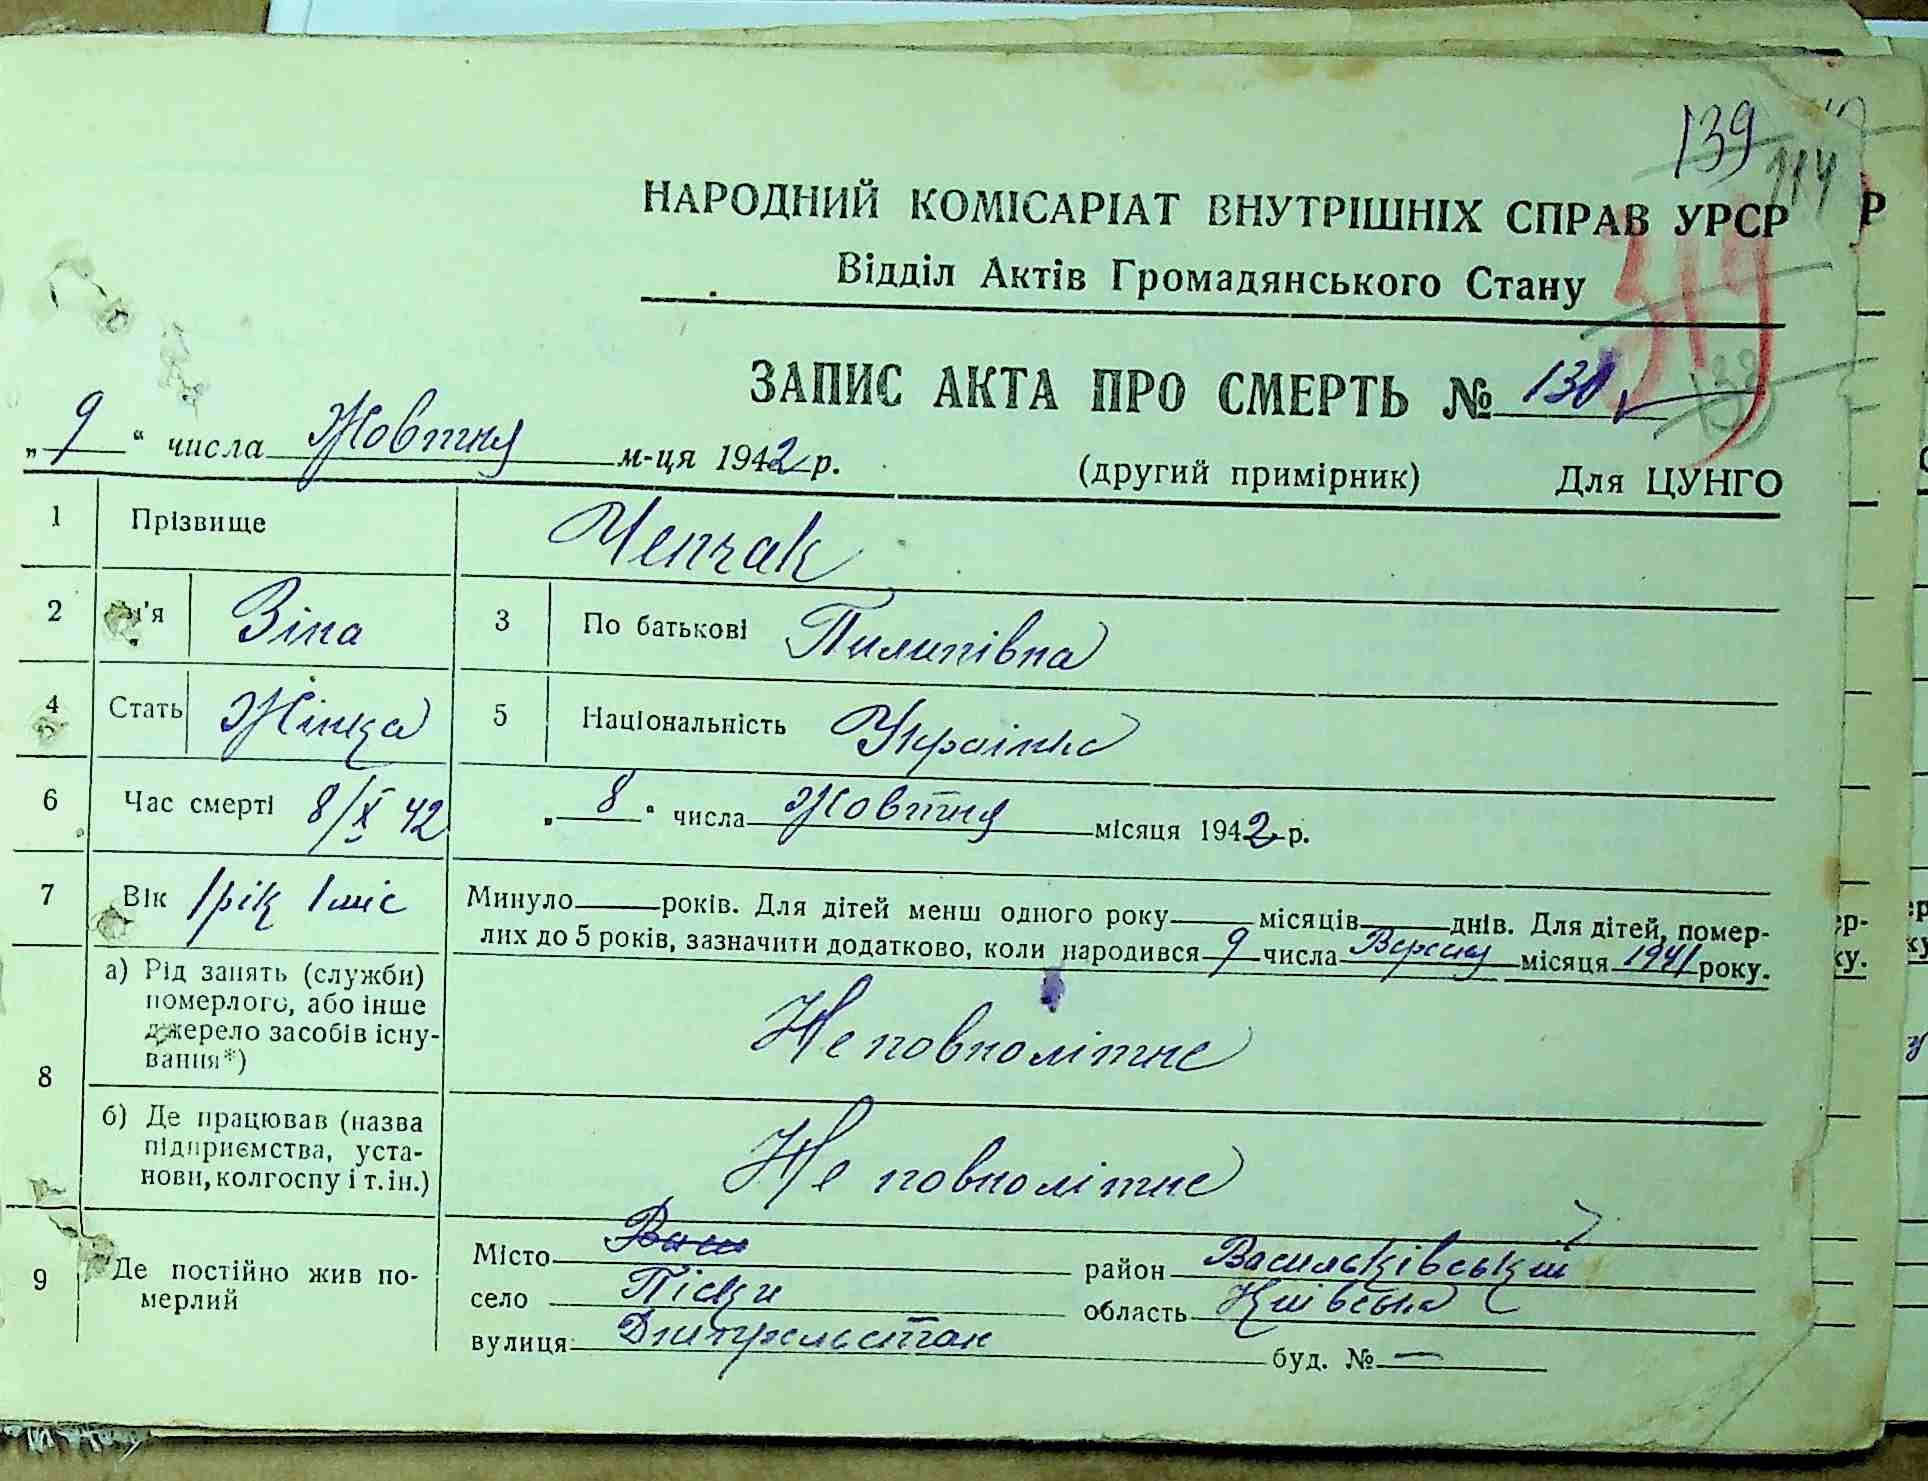 139
114
НАРОДНИЙ КОМІСАРІАТ ВНУТРІШНІХ СПРАВ УРСР
Відділ Актів Громадянського Стану
319
ЗАПИС АКТА ПРО СМЕРТЬ № 130
„ 9 “ числа Жовтня м-ця 1942 р. (другий примірник) Для ЦУНГО
1 Прізвище Чепчак
2 ім'я Зіна 3 По батькові Пилипівна
4 Стать Жінка 5 Національність Українка
6 Час смерті 8/X 42 „ 8 “ числа Жовтня місяця 1942 р.
7 Вік 1 рік 1 міс Минуло рОків. Для дітей менш одного року місяців днів. Для дітей, помер-
лих до 5 років, зазначити додатково, коли народився 9 числа Вересня місяця 1941 року.
8 а) Рід занять (служби)
померлого, або інше
джерело засобів існу-
вання*)
Неповнолітнє
б) Де працював (назва
підприємства, уста-
нови, колгоспу і т. ін.)
Не повнолітнє
9 Де постійно жив по-
мерлий
Місто район Васильківський
село Піски область Київська
вулиця буд. № —